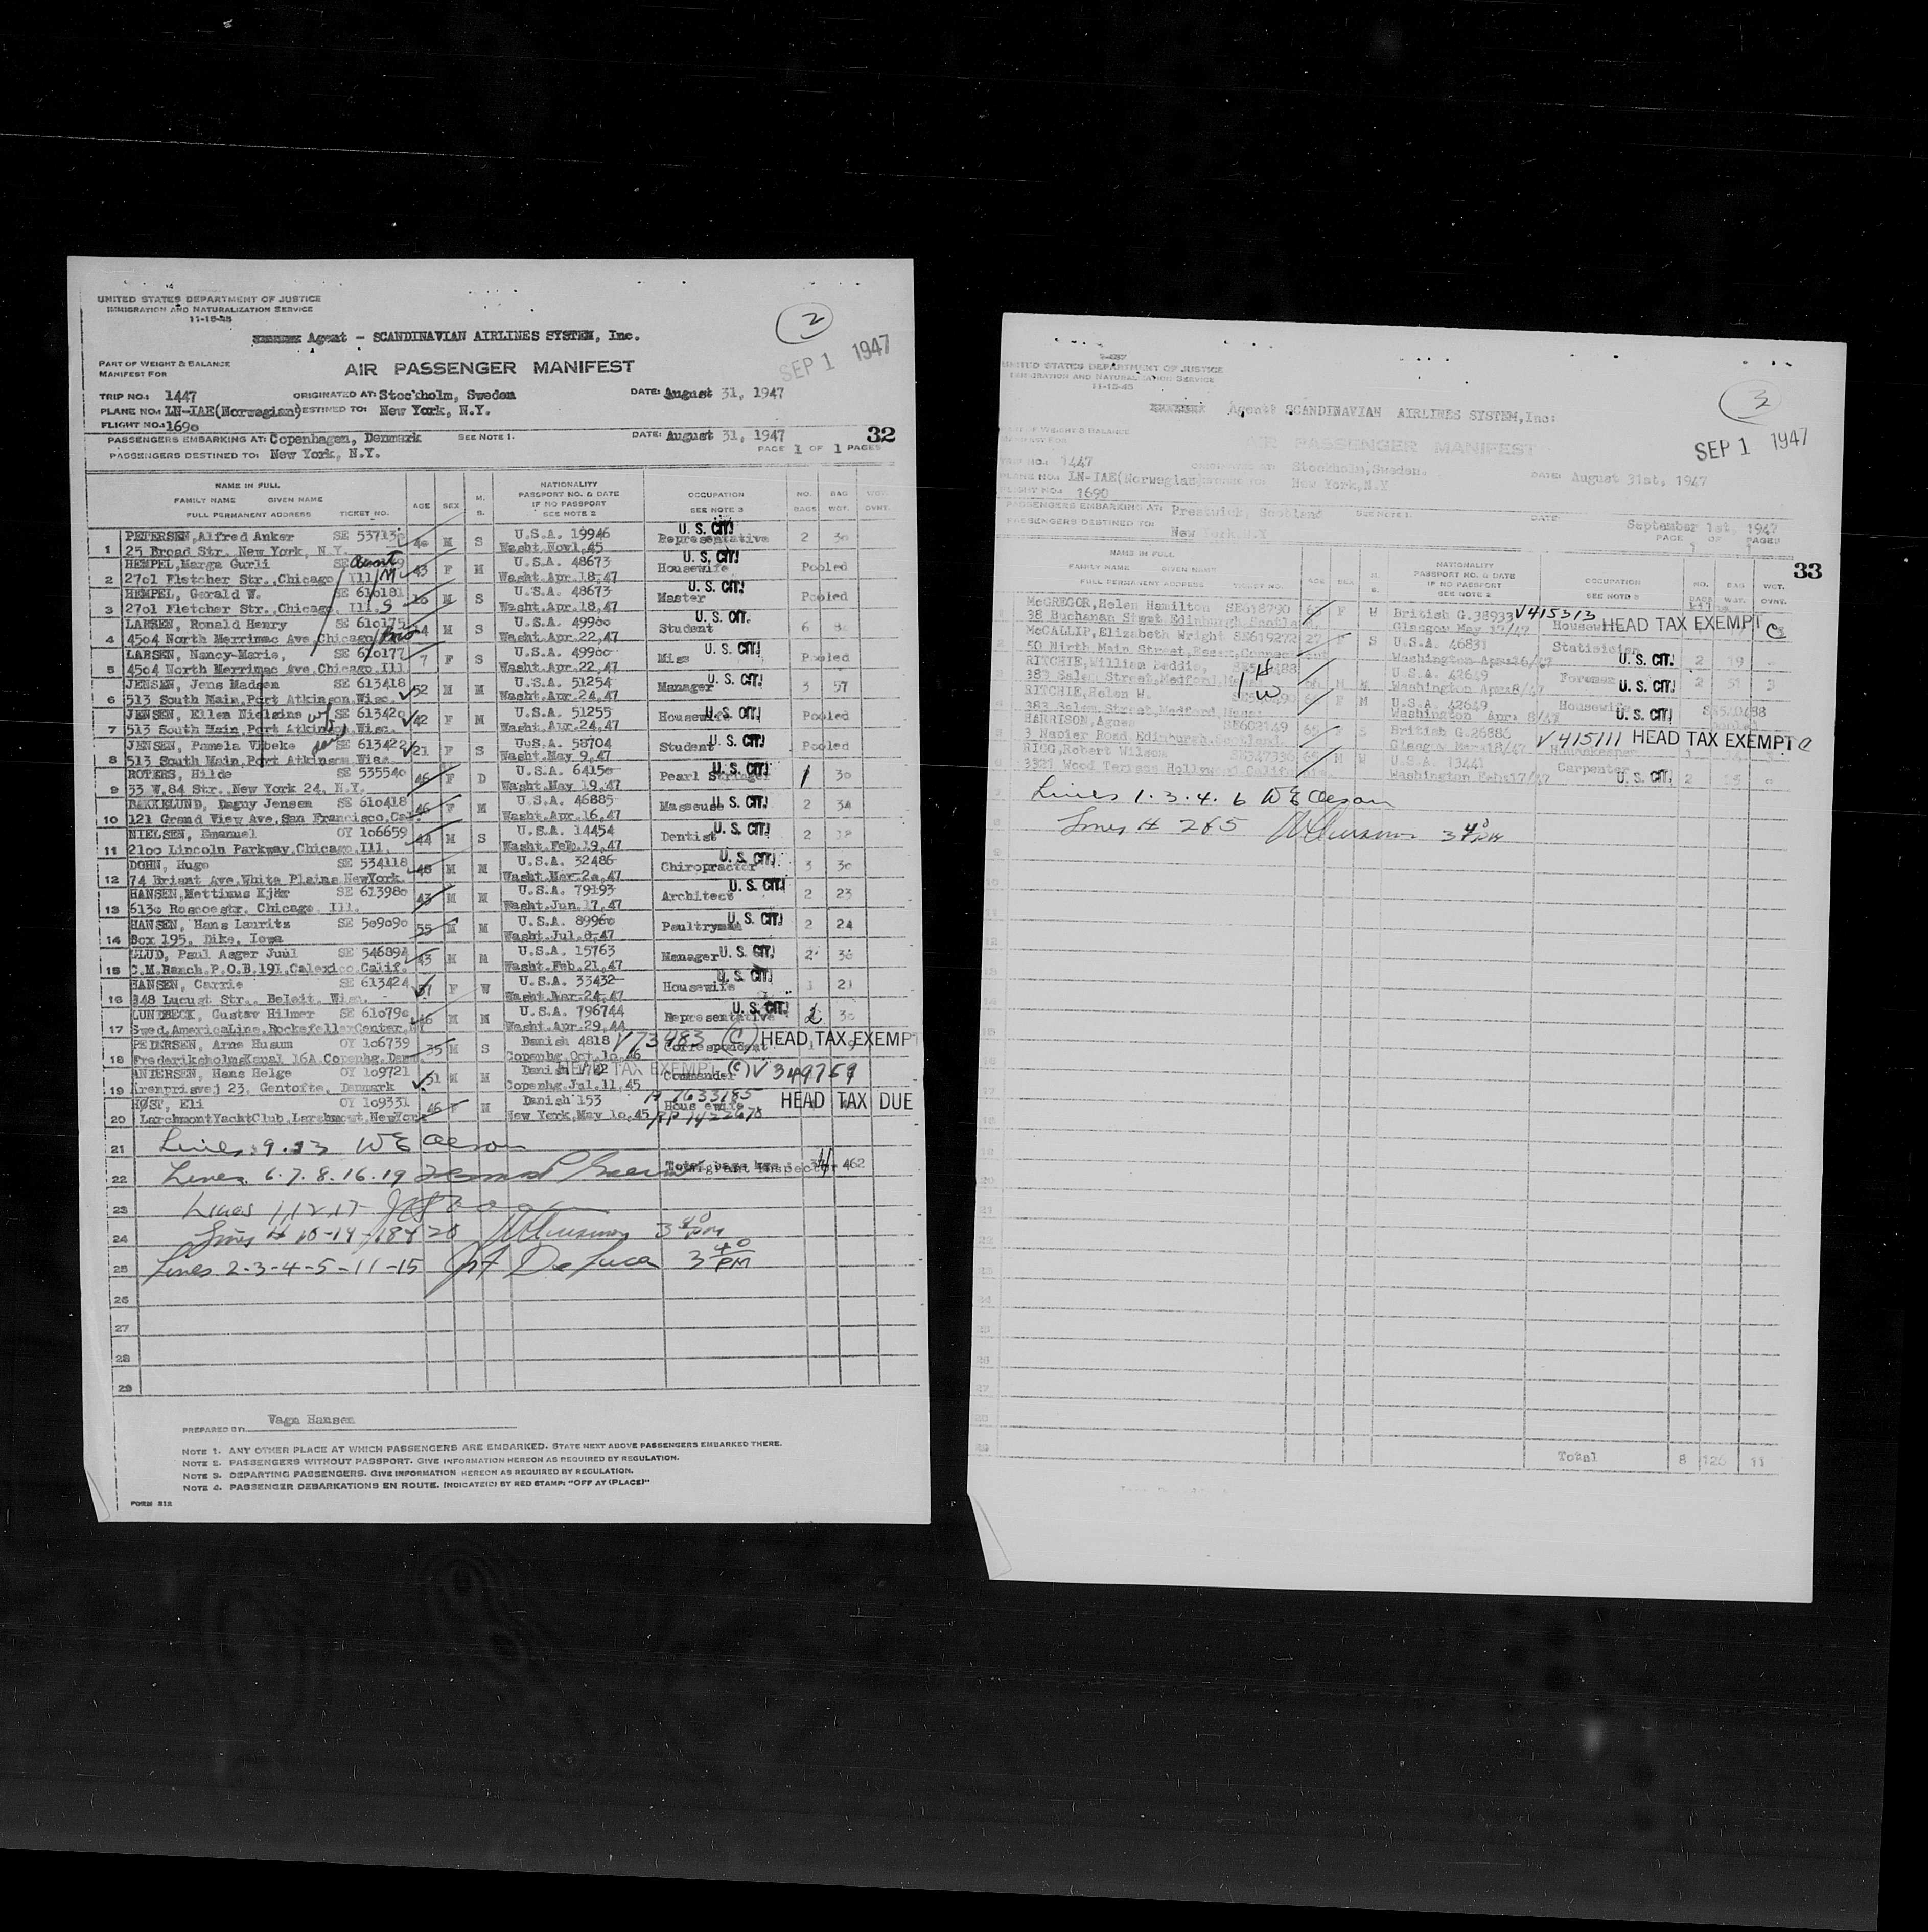 UNITED STATES DEPARTMENT OF JUSTICE
IMMIGRATION AND NATURALIZATION SERVICE
11-15-45
2
Agent - SCANDINAVIAN AIRLINES SYSTEM, Inc.
SEP 1 1947
PART OF WEIGHT & BALANCE
MANIFEST FOR
AIR PASSENGER MANIFEST
TRIP NO.: 1447 ORIGINATED AT: Stockholm, Sweden DATE: August 31, 1947
PLANE NO.: LN-IAE(Norwegian) DESTINED TO: New York, N.Y.
FLIGHT NO.: 1690
PASSENGERS EMBARKING AT: Copenhagen, Denmark SEE NOTE 1. DATE: August 31, 1947 32
PASSENGERS DESTINED TO: New York, N.Y. PAGE 1 OF 1 PAGES
NAME IN FULL
FAMILY NAME GIVEN NAME
FULL PERMANENT ADDRESS TICKET NO.
AGE SEX M. S.
NATIONALITY
PASSPORT NO. & DATE
IF NO PASSPORT
SEE NOTE 2
OCCUPATION
SEE NOTE 3
NO. BAGS BAG WGT. WGT. OVNT.
PETERSEN, Alfred Anker SE U.S.A. 19946 U. S. CIT!
1 25 Broad Str. New York, N.Y. M S Washt Nov1.45 Representative 2 30
HEMPEL, Marga Gurli SE Aunt U.S.A. 48673 U. S. CIT!
2 2701 Fletcher Str. Chicago Ill M 43 F M Washt.Apr.18.47 Housewife Pooled
HEMPEL, Gerald W. SE 610181 U.S.A. 48673 U. S. CIT!
3 2701 Fletcher Str. Chicago. Ill. S 16 M S Washt.Apr.18.47 Master Pooled
LARSEN, Ronald Henry SE 610175 U.S.A. 49900 U. S. CIT.
4 4504 North Merrimac Ave.Chicago M S Washt.Apr.22.47 Student 6
LARSEN, Nancy-Marie, SE 610177 U.S.A. 49900 U. S. CIT!
5 4504 North Merrimac Ave.Chicago.Ill. 7 F S Washt.Apr.22.47 Miss Pooled
JENSEN, Jens Madsen SE 613418 U.S.A. 51254 U. S. CIT!
6 513 South Main,Port Atkinson.Wisc. 52 M M Washt.Apr.24.47 Manager 3 57
JENSEN, Ellen Nielsine wf SE 613420 U.S.A. 51255
7 513 South Main,Port Atkinson.Wisc. 42 F M Washt.Apr.24.47 Housewife U. S. CIT! Pooled
JENSEN, Pamela Vibeke SE 613422 U.S.A. 58704
8 513 South Main,Port Atkinson Wisc. 21 F S Washt.May 9.47 Student U. S. CIT! Pooled
ROTERS, Hilde SE 535540 U.S.A. 64150 U. S. CIT!
9 33 W.84 Str. New York 24, N.Y. 46 F D Washt.May 19.47 Pearl Stringer 1 30
BAKKELUND, Dagny Jensen SE 610418 U.S.A. 46885
10 121 Grand View Ave.San Francisco.Cal. 46 F M Washt.Apr.16.47 Masseuse U. S. CIT! 2 34
NIELSEN, Emanuel OY 106659 U.S.A. 14454
11 2100 Lincoln Parkway.Chicago.Ill. 44 M S Washt.Feb.19.47 Dentist U. S. CIT! 2
DOHN, Hugo SE 534118 U.S.A. 32486 U. S. CIT!
12 74 Briant Ave.White Plains NewYork. 48 M M Washt.Mar.20.47 Chiropractor 3 30
HANSEN, Mettinus Kjær SE 613980 U.S.A. 79193 U. S. CIT!
13 6130 Roscoestr. Chicago. Ill. 43 M M Washt.Jun.17.47 Architect 2 23
HANSEN, Hans Lauritz SE 509090 U.S.A. 89960
14 Box 195, Dike, Iowa 55 M M Washt.Jul.8.47 Poultryman U. S. CIT! 2 24
LUND, Paul Aager Juul SE 546894 U.S.A. 15763
15 C.M.Ranch.P.O.B.191.Calexico.Calif. 43 M M Washt.Feb.21.47 Manager U. S. CIT! 2 36
HANSEN, Carrie SE 613424 U.S.A. 33432 U. S. CIT!
16 848 Lucust Str.. Beloit. Wisc. F W Washt.Mar.24.47 Housewife 1 21
LUNDBECK, Gustav Hilmer SE 610790 U.S.A. 796744 U. S. CIT!
17 Swed.AmericaLine.RockefellerCenter.NY 46 M M Washt.Apr.29.44 Representative 2 30
PEDERSEN, Arne Husum OY 106739 Danish 4818 V73983 (C) HEAD TAX EXEMPT
18 FrederiksholmsKanal 16A.Copenhg.Denm. 35 M S Copenhg.Oct.10.46 Correspondent
ANDERSEN, Hans Helge OY 109721 Danish HEAD TAX EXEMPT (C) V349759
19 Krenprisvej 23, Gentofte, Denmark 51 M M Copenhg.Jul.11.45 Commander
HØST, Eli OY 109331 Danish 153 HEAD TAX DUE
20 LarchmontYachtClub.Larchmont.NewYork 46 F M New York.May 10.45 Housewife
21 Lines 9.13 W E Oleson
22 Lines 6.7.8.16.19 Immigrant Inspector 462
23 Lines 1,12,17
24 Lines # 10-14-18 & 20 3 40 PM
25 Lines 2-3-4-5-11-15 De Luca 3 40 PM
26
27
28
29
PREPARED BY: Vagn Hansen
NOTE 1. ANY OTHER PLACE AT WHICH PASSENGERS ARE EMBARKED. STATE NEXT ABOVE PASSENGERS EMBARKED THERE.
NOTE 2. PASSENGERS WITHOUT PASSPORT. GIVE INFORMATION HEREON AS REQUIRED BY REGULATION.
NOTE 3. DEPARTING PASSENGERS. GIVE INFORMATION HEREON AS REQUIRED BY REGULATION.
NOTE 4. PASSENGER DEBARKATIONS EN ROUTE. INDICATE(C) BY RED STAMP: "OFF AT (PLACE)"
FORM 812
UNITED STATES DEPARTMENT OF JUSTICE
IMMIGRATION AND NATURALIZATION SERVICE
11-15-45
3
Agent: SCANDINAVIAN AIRLINES SYSTEM,Inc:
PART OF WEIGHT & BALANCE
MANIFEST FOR
AIR PASSENGER MANIFEST
SEP 1 1947
TRIP NO.: 1447 ORIGINATED AT: Stockholm,Sweden.
PLANE NO.: LN-IAE(Norweglan) DESTINED TO: New York,N.Y DATE: August 31st, 1947
FLIGHT NO.: 1690
PASSENGERS EMBARKING AT: Prestwick, Scotland SEE NOTE 1. DATE: September 1st, 1947
PASSENGERS DESTINED TO: New York N.Y PAGE 1 OF 1 PAGES
33
NAME IN FULL
FAMILY NAME GIVEN NAME
FULL PERMANENT ADDRESS TICKET NO.
AGE SEX M. S.
NATIONALITY
PASSPORT NO. & DATE
IF NO PASSPORT
SEE NOTE 2
OCCUPATION
SEE NOTE 3
NO. BAGS BAG WGT. WGT. OVNT.
McGREGOR,Helen Hamilton SE618790 F W British G.38933 V415313
38 Buchanan Steet Edinburgh Glasgow May Housewife HEAD TAX EXEMPT C
McCALLIP,Elizabeth Wright SE619272 27 F S U.S.A. 46831 Statisician
50 Nirth Main Street,Essex,Connecticut Washington U. S. CIT. 2 19
RITCHIE,William Beddie, H U.S.A. 42649 Foreman
383 Salem Street,Medford,Mass M M Washington Apr:8/47 U. S. CIT. 2 51 3
RITCHIE,Helen W. W F M U.S.A. 42649 Housewife
383 Salem Street,Medford,Mass: Washington Apr: 8/47 U. S. CIT.
HARRISON,Agnes SE602149 65 F S British G.26886 V415111 HEAD TAX EXEMPT C
3 Napier Road Edinburgh. Glasgow Housekeeper
RIGG,Robert Wilson M W U.S.A. 13441 Carpenter
3321 Wood Terrace Hollywood California. Washington Feb:17/47 U. S. CIT. 2
Lines 1.3.4.6 W E Oleson
Lines # 2&5 3 40 PM
Total 8 126 11